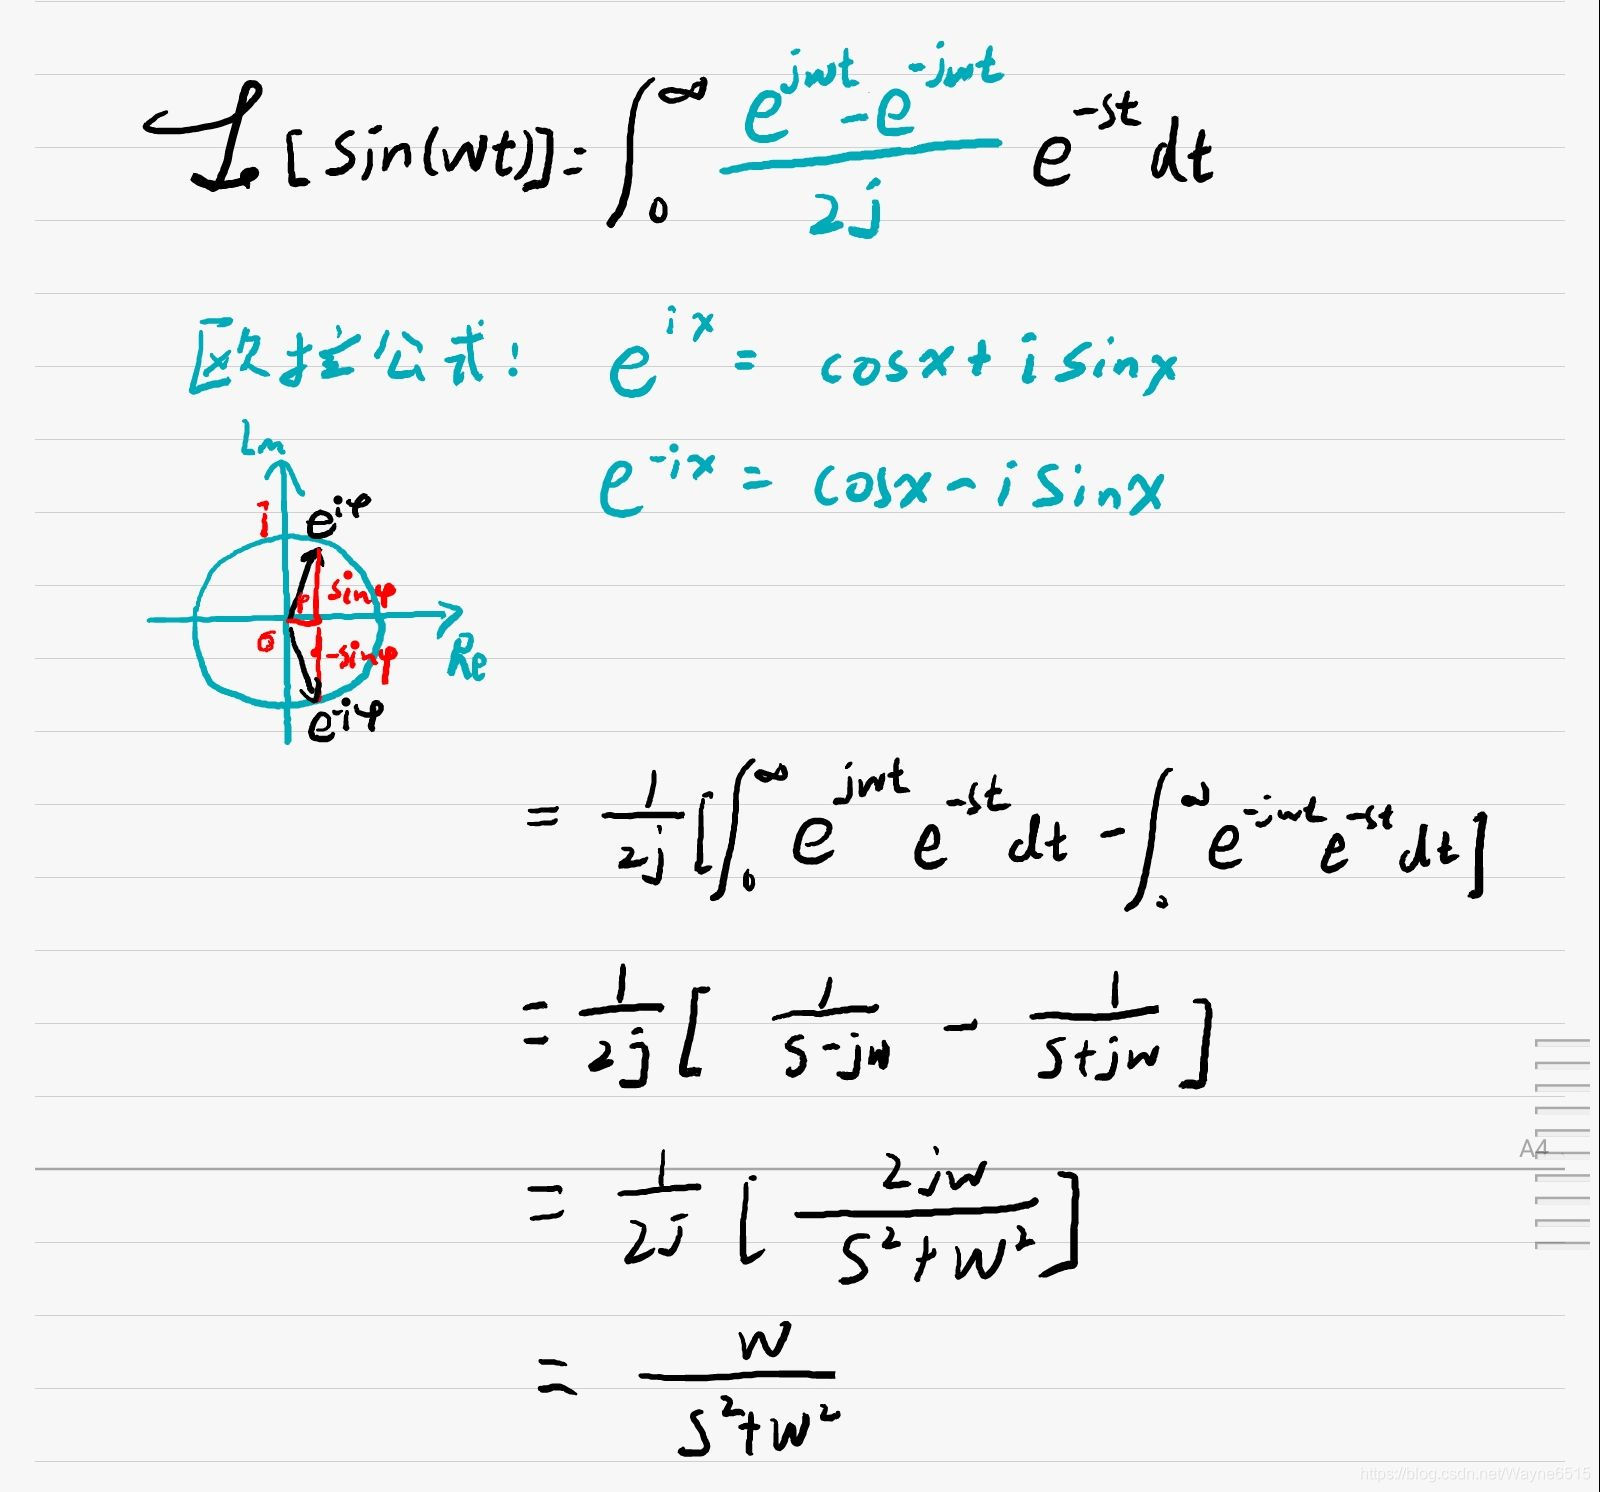 ℒ[sin(wt)] = ∫₀^∞ (e^{jwt} - e^{-jwt})/(2j) e^{-st} dt
欧拉公式: e^{ix} = cosx + i sinx
e^{-ix} = cosx - i sinx
Lm
i
e^{iφ}
φ
sinφ
0
-sinφ
Re
e^{-iφ}
= 1/(2j) [∫₀^∞ e^{jwt} e^{-st} dt - ∫₀^∞ e^{-jwt} e^{-st} dt]
= 1/(2j) [ 1/(s-jw) - 1/(s+jw) ]
A4
= 1/(2j) [ 2jw/(s²+w²) ]
= w/(s²+w²)
https://blog.csdn.net/Wayne6515